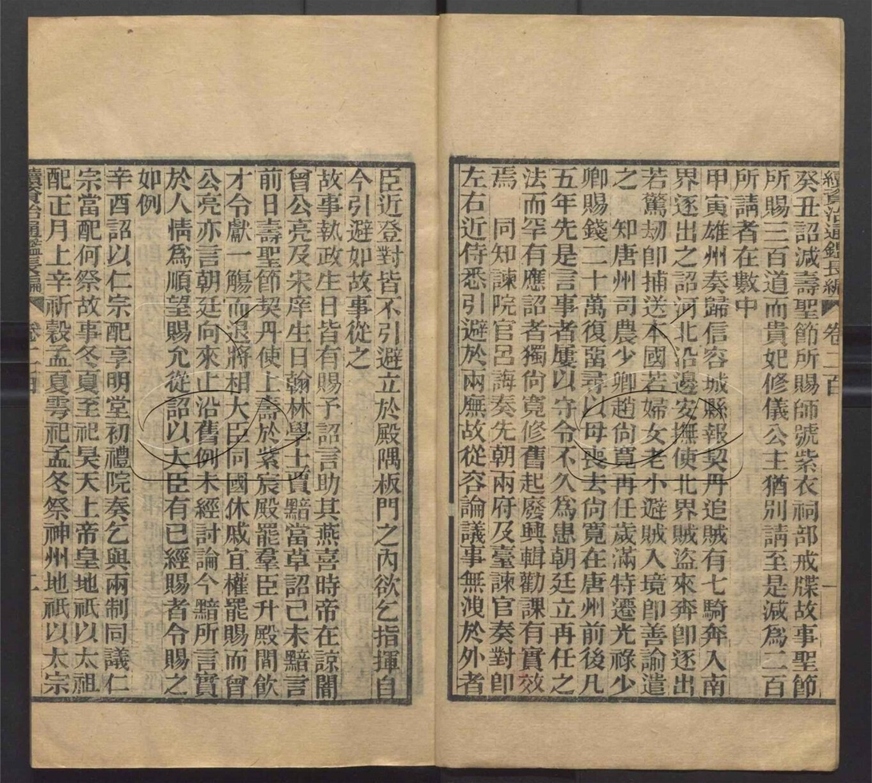 續資治通鑑長編 卷二百 一
癸丑詔減壽聖節所賜師號紫衣祠部戒牒故事聖節
所賜三百道而貴妃修儀公主猶別請至是減爲二百
所請者在數中
甲寅雄州奏歸信容城縣報契丹追賊有七騎奔入南
界逐出之詔河北沿邊安撫使北界賊盜來奔卽逐出
若驚刼卽捕送本國若婦女老小避賊入境卽善諭遣
之 知唐州司農少卿趙尙寬再任歲滿特遷光祿少
卿賜錢二十萬復留尋以母喪去尙寬在唐州前後凡
五年先是言事者屢以守令不久爲患朝廷立再任之
法而罕有應詔者獨尙寬修舊起廢興輯勸課有實效
焉 同知諫院官呂誨奏先朝兩府及臺諫官奏對卽
左右近侍悉引避於兩廡故從容論議事無洩於外者
臣近登對皆不引避立於殿隅板門之內欲乞指揮自
今引避如故事從之
故事執政生日皆有賜予詔言助其燕喜時帝在諒闇
曾公亮及宋庠生日翰林學士賈黯當草詔己未黯言
前日壽聖節契丹使上壽於紫宸殿罷羣臣升殿間飲
才令獻一觴而退將相大臣同國休戚宜權罷賜而曾
公亮亦言朝廷向來止沿舊例未經討論今黯所言實
於人情爲順望賜允從詔以大臣有已經賜者令賜之
如例
辛酉詔以仁宗配享明堂初禮院奏乞與兩制同議仁
宗當配何祭故事冬夏至祀昊天上帝皇地祇以太祖
配正月上辛祈穀孟夏雩祀孟冬祭神州地祇以太宗
續資治通鑑長編 卷二百 二